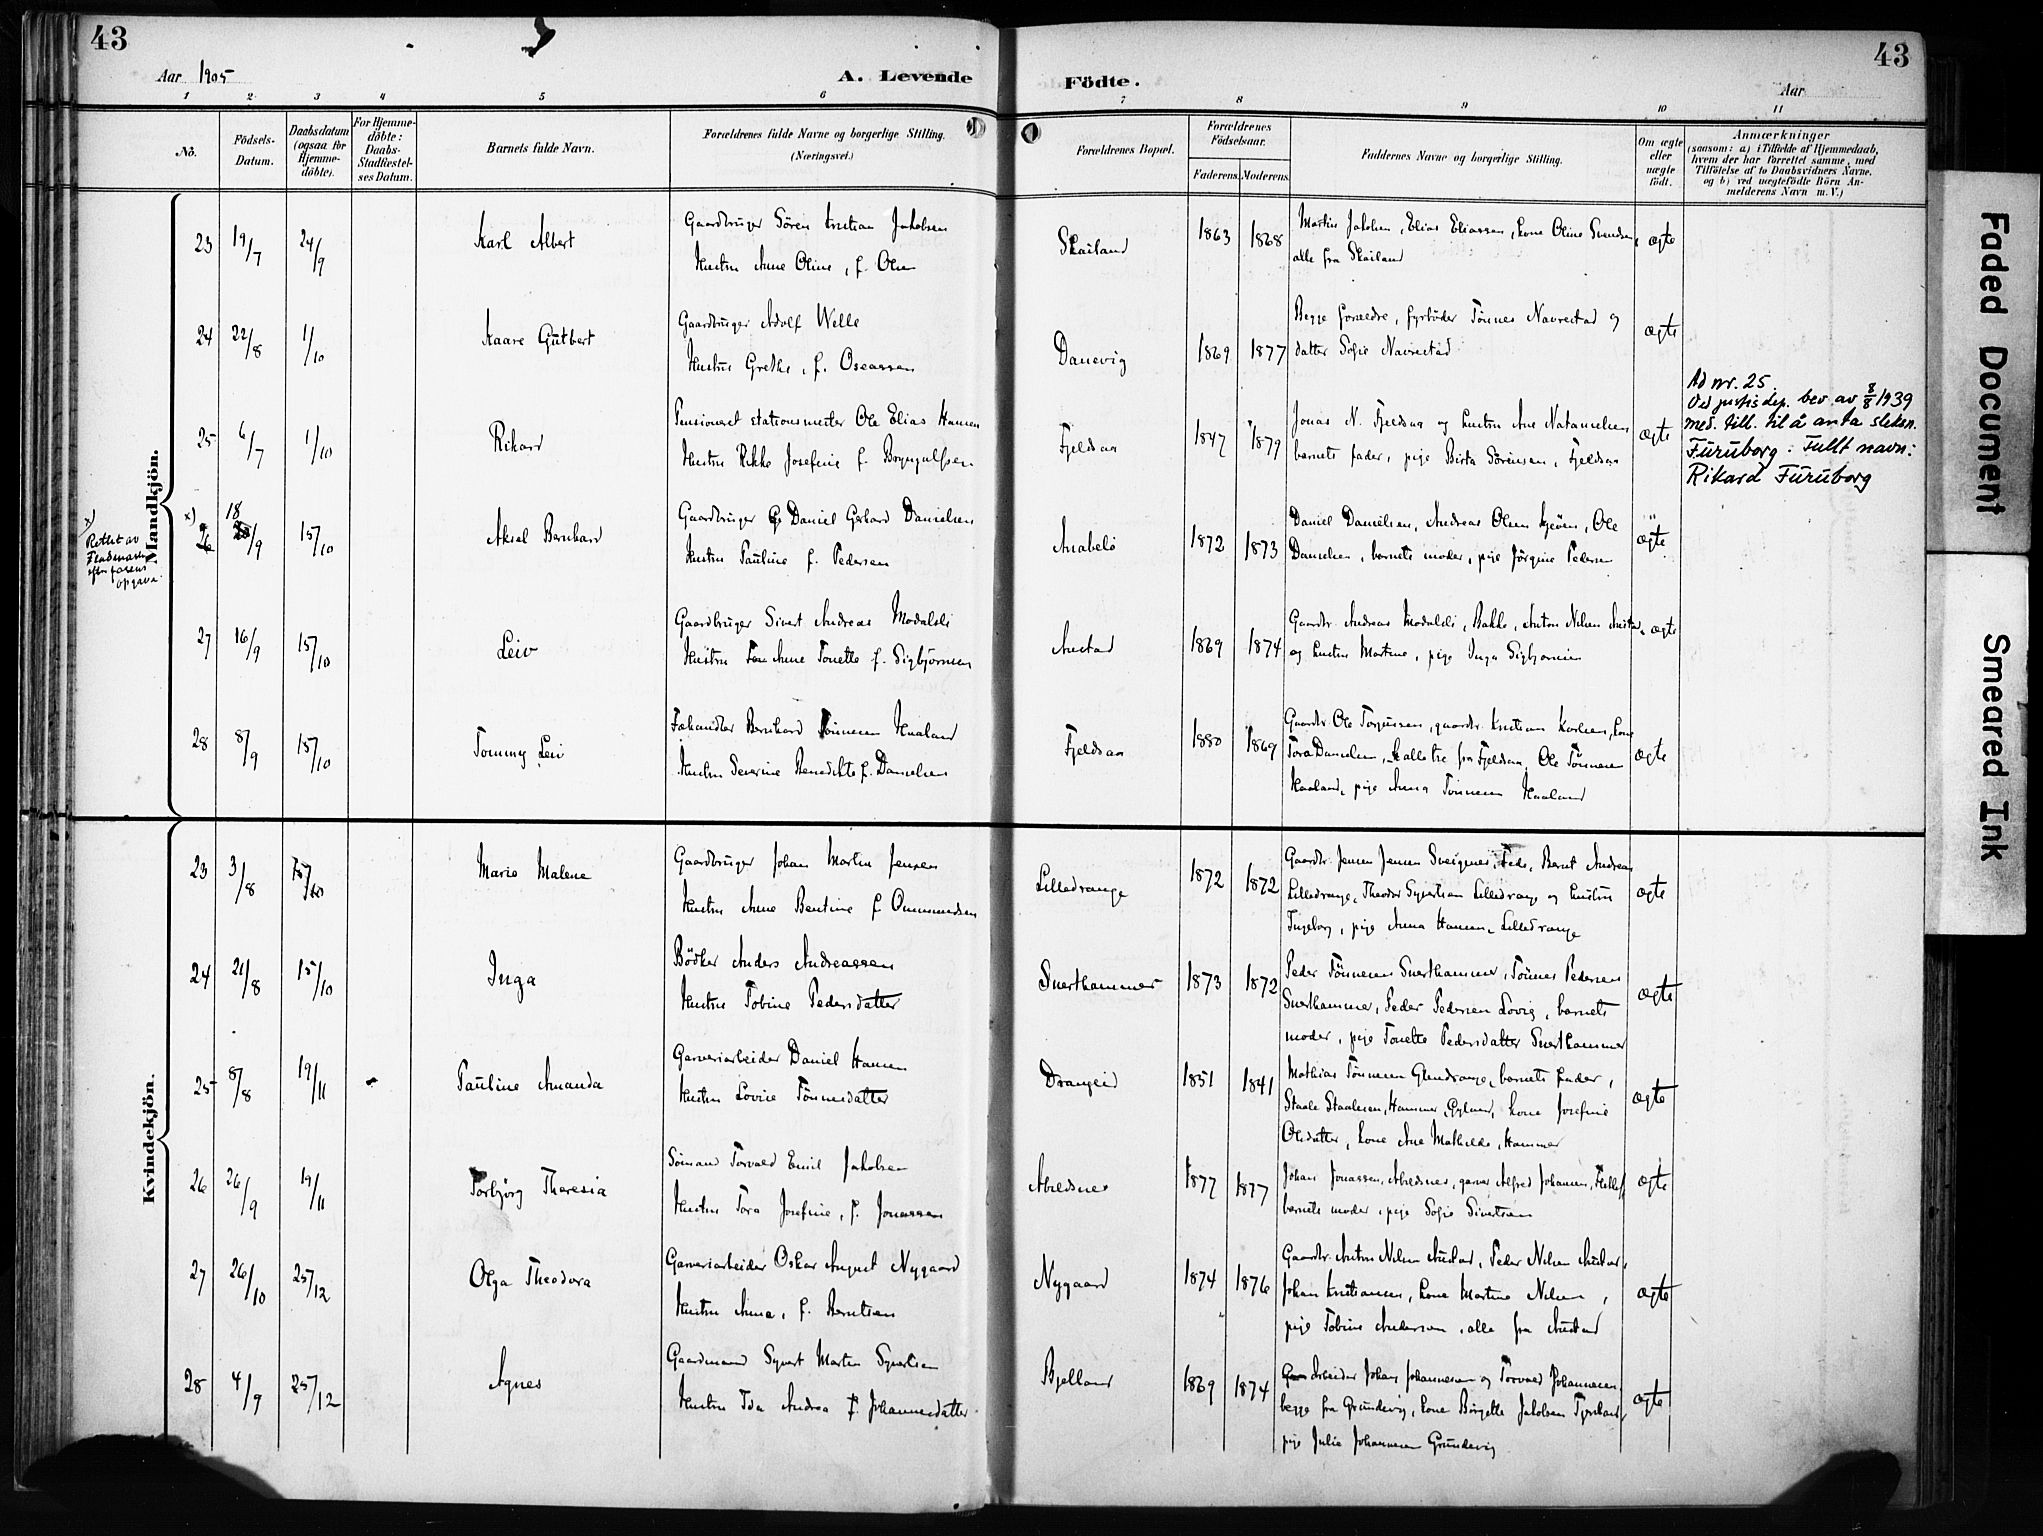 43
43
Aar 1905
A. Levende
Födte.
Aar
1 2 3 4 5 6 7 8 9 10 11
No.
Födsels-Datum.
Daabsdatum (ogsaa for Hjemme-döbte).
For Hjemme-döbte: Daabs-Stadfæstel-ses Datum.
Barnets fulde Navn.
Forældrenes fulde Navne og borgerlige Stilling.
(Næringsvei.)
Forældrenes Bopæl.
Forældrenes Födselsaar.
Faderens. Moderens.
Faddernes Navne og borgerlige Stilling.
Om ægte eller uægte födt.
Anmærkninger
(saasom: a) i Tilfælde af Hjemmedaab,
hvem der har forrettet samme, med
Tilföielse af to Daabsvidners Navne.
og b) ved uægtefödte Börn An-
melderens Navn m.V.)
Mandkjön.
23 19/7 24/9 Karl Albert
Gaardbruger Sören Kristian Jakobsen
Hustru Anne Oline, f. Olsen
Skailand 1863 1868
Martin Jakobsen, Elias Eliassen, kone Oline Svendsen,
alle fra Skailand
ægte
24 22/8 1/10 Kaare Gutbert
Gaardbruger Adolf Welle
Hustru Grethe, f. Oseassen
Danevig 1869 1877
Begge forældre, fyrböder Tönnes Navrestad og
datter Sofie Navrestad
ægte
25 6/7 1/10 Rikard
Pensioneret stationsmester Ole Elias Hansen
Hustru Rikke Josefine f. Bryngulfsen
Fjeldsaa 1847 1879
Jonas N. Fjeldsaa og hustru Ane Natanielsen
barnets fader, pige Birta Sörensen, Fjeldsaa
ægte
Ad nr. 25
Ved justisdep. bev. av 8/8 1939
med. till. til å anta slektsn.
Furuborg: Fullt navn:
Rikard Furuborg
x)
Rettet av
efter farens
opgave.
x) 26 18/9 15/10 Aksel Bernhard
Gaardbruger Daniel Gerhard Danielsen
Hustru Pauline f. Pedersen
Anabelö 1872 1873
Daniel Danielsen, Andreas Olsen, Ole
Danielsen, barnets moder, pige Jörgine Pedersen
ægte
27 16/9 15/10 Leiv
Gaardbruger Sivert Andreas Modalsli
Hustru Anne Tonette f. Sigbjörnsen
Austad 1869 1874
Gaardbr. Andreas Modalsli, Bakke, Anton Nilsen Austad,
og hustru Martine, pige Inga Sigbjörnsen
ægte
28 8/9 15/10 Tommy Leiv
Fæhandler Bernhard Tönnesen Haaland
Hustru Severine Benedikte f. Danielsen
Fjeldsaa 1880 1869
Gaardbr. Ole Torjussen, gaardbr. Kristian Karlsen, kone
Tora Danielsen, alle tre fra Fjeldsaa, Ole Tönnesen
Haaland, pige Anna Tönnesen Haaland
ægte
Kvindekjön.
23 3/8 15/10 Marie Malene
Gaardbruger Johan Martin Jensen
Hustru Anne Bentine f. Ommundsen
Lilledrange 1872 1872
Gaardbr. Jensen Sveignes, Feda, Bernt Andreas
Lilledrange, Theodor Syvertsen Lilledrange og hustru
Ingeborg, pige Anna Hansen, Lilledrange
ægte
24 21/8 15/10 Inga
Bödker Anders Andreassen
Hustru Tobine Pedersdatter
Snerthammer 1873 1872
Peder Tönnesen Snerthammer, Tönnes Pedersen
Snerthammer, Peder Pedersen Lovig, barnets
moder, pige Tonette Pedersdatter Snerthammer
ægte
25 8/8 19/11 Pauline Amanda
Garveriarbeider Daniel Hansen
Hustru Lovise Tönnesdatter
Drangeid 1851 1841
Mathias Tönnesen Glendrange, barnets fader,
Staale Staalesen, Hammer, Gyland, kone Josefine
Olsdatter, kone Ane Mathilde, Hammer
ægte
26 26/9 19/11 Torbjörg Theresia
Sömand Torvald Emil Jakobsen
Hustru Tora Josefine, f. Jonassen
Abelsnes 1877 1877
Johan Jonassen, Abelsnes, garver Alfred Johansen,
barnets moder, pige Sofie Sivertsen
ægte
27 26/10 25/12 Olga Theodora
Garveriarbeider Oskar August Nygaard
Hustru Anna, f. Berntsen
Nygaard 1874 1876
Gaardbr. Anton Nilsen Austad, Peder Nilsen Austad,
Johan Kristiansen, kone Martine Nilsen,
pige Tobine Andersen, alle fra Austad
ægte
28 4/9 25/12 Agnes
Gaardmand Syvert Martin Syvertsen
Hustru Ida Andrea f. Johannesdatter
Bjelland 1869 1874
Arbeider Johan Johannesen og Torvald Johannesen
begge fra Grundevig, kone Börgette Jakobsen
pige Julie Johannesen Grundevig
ægte
Faded Document
Smeared Ink